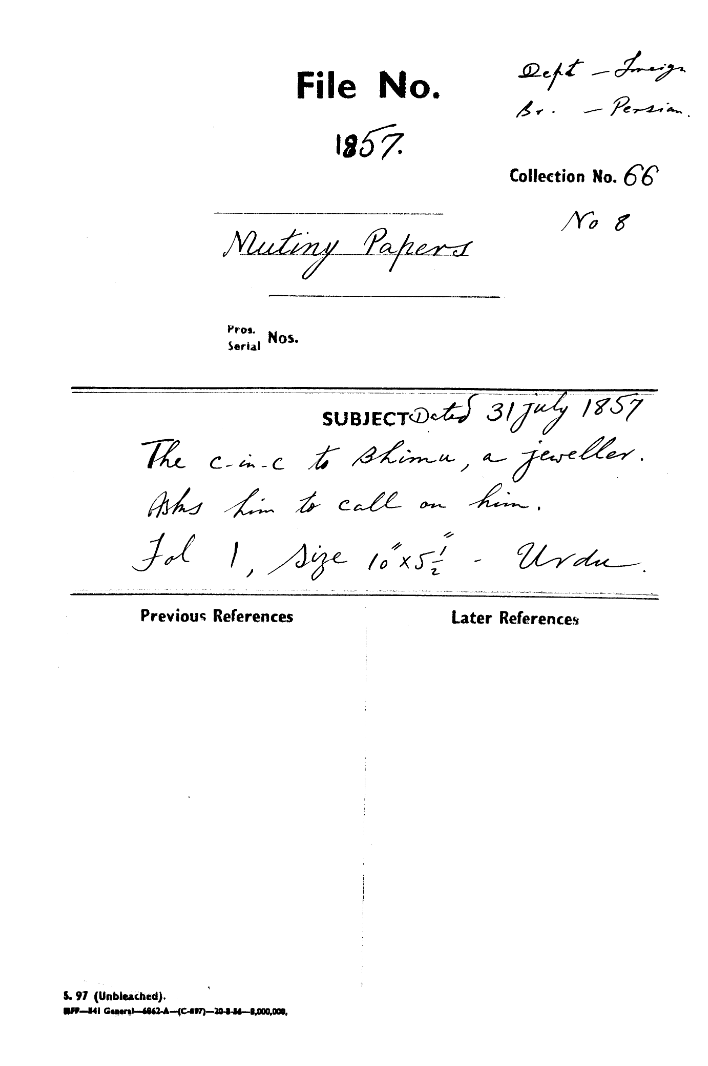 File No.
Dept - Foreign
Br. - Persian.
1857.
Collection No. 66
No 8
Mutiny Papers
Pros.
Serial Nos.
SUBJECT Dated 31 July 1857
The c-in-c to Bhimu, a jeweller.
Asks him to call on him.
Fol 1, Size 10"x5½" - Urdu.
Previous References
Later References
S. 97 (Unbleached).
General